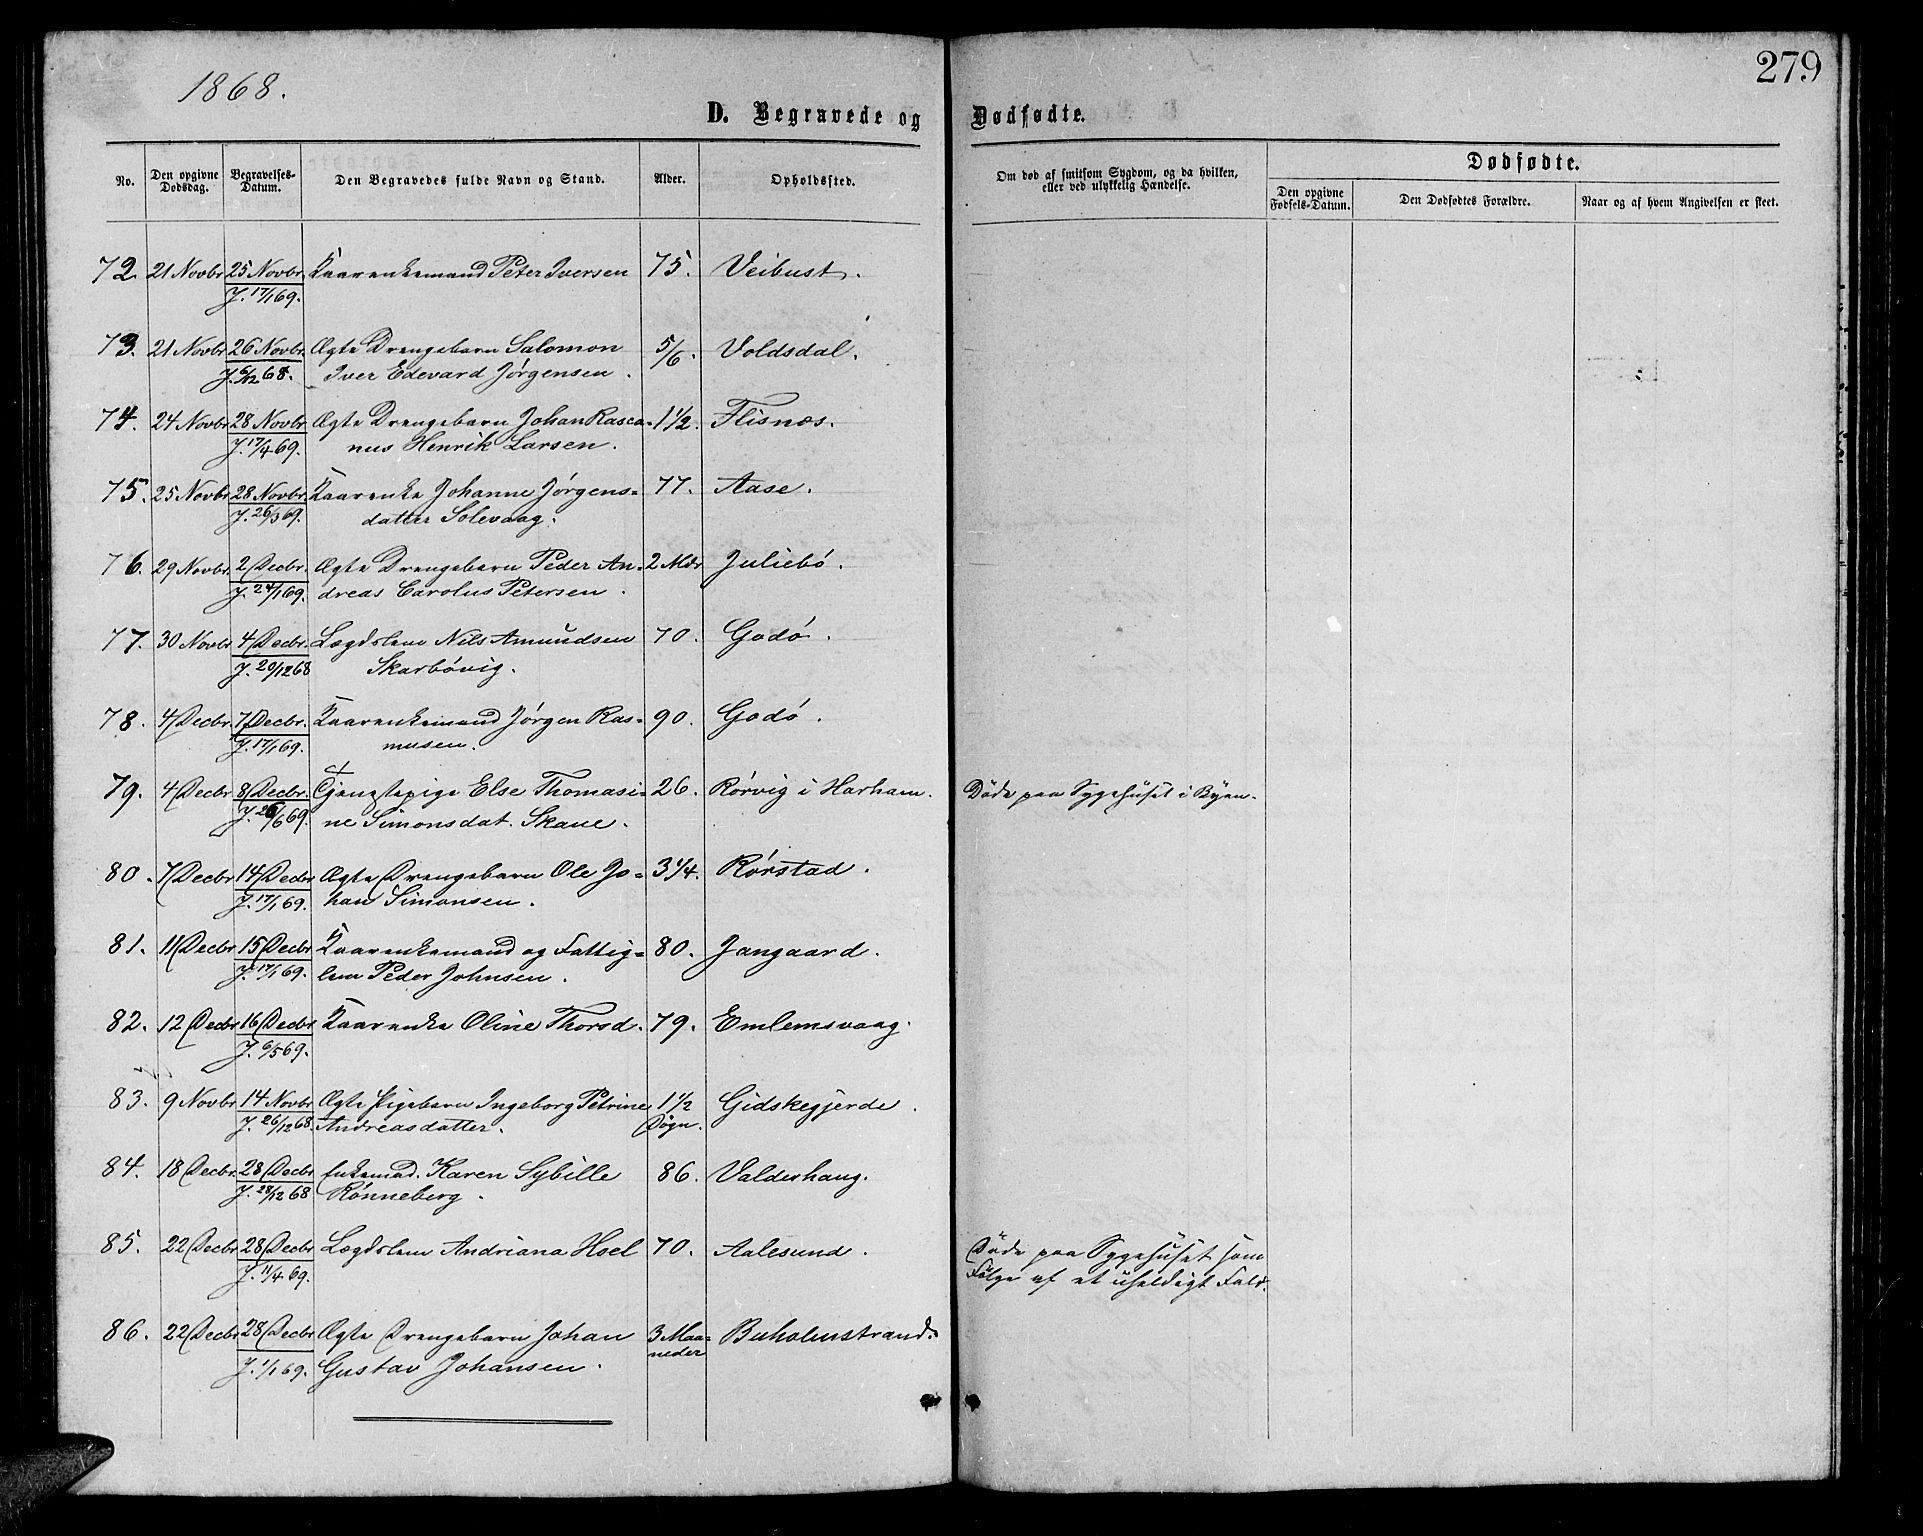 1868.
279
D. Begravede og Dødfødte.
No. Den opgivne Dødsdag. Begravelses-Datum. Den Begravedes fulde Navn og Stand. Alder. Opholdssted. Om død af smitsom Sygdom, og da hvilken, eller ved ulykkelig Hændelse. Dødfødte. Den opgivne Fødsels-Datum. Den Dødfødtes Forældre. Naar og af hvem Angivelsen er skeet.
72. 21 Novbr 25 Novbr. Kaarenkemand Peter Iversen 75. Veibust.
J. 17/1 69.
73. 21 Novbr 26 Novbr. Ægte Drengebarn Salomon 5/6. Voldsdal.
J. 6/12 68. Iver Edevard Jørgensen.
74. 24 Novbr 28 Novbr. Ægte Drengebarn Johan Rasca- 1 1/2. Flisnæs.
J. 17/4 69. nus Henrik Larsen.
75. 25 Novbr 28 Novbr. Kaarenke Johanne Jørgens- 77. Aase.
J. 26/3 69. datter Solevaag.
76. 29 Novbr. 2 Decbr. Ægte Drengebarn Peder An- 2 Mdr Juliebö.
J. 24/1 69. dreas Carolus Petersen.
77. 30 Novbr 4 Decbr. Lægdslem Nils Amundsen 70. Godö.
J. 20/12 68 Skarbövig.
78. 4 Decbr. 7 Decbr. Kaarenkemand Jörgen Ras- 90. Godö.
J. 17/1 69. musen.
79. 4 Decbr 8 Decbr. Tjenestepige Else Thomasi- 26. Rörvig i Harham. Döde paa Sygehuset i Byen.
J. 26/6 69. ne Simonsdat. Skaue.
80. 7 Decbr 14 Decbr Ægte Drengebarn Ole Jo- 3 1/4. Rörstad.
J. 17/1 69. han Simonsen.
81. 11 Decbr 15 Decbr Kaarenkemand og Fattig- 80. Jangaard.
J. 17/1 69. lem Peder Johnsen.
82. 12 Decbr 16 Decbr Kaarenke Oline Thorsd. 79. Emlemsvaag.
J. 6/5 69.
83. 9 Novbr 14 Novbr Ægte Pigebarn Ingeborg Petrine 1 1/2 Gidskegjerde.
J. 26/12 68. Andreasdatter. Døgn.
84. 18 Decbr. 28 Decbr Enkemad. Karen Sybille 86. Valderhaug.
J. 28/12 68 Rönneberg.
85. 22 Decbr 28 Decbr Lægdslem Andriana Hoel 70. Aalesund. Döde paa Sygehuset som
J. 11/4 69. Fölge af et uheldigt Fald.
86. 22 Decbr 28 Decbr Ægte Drengebarn Johan 3 Maa- Buholmstrand.
J. 1/1 69. Gustav Johansen. neder